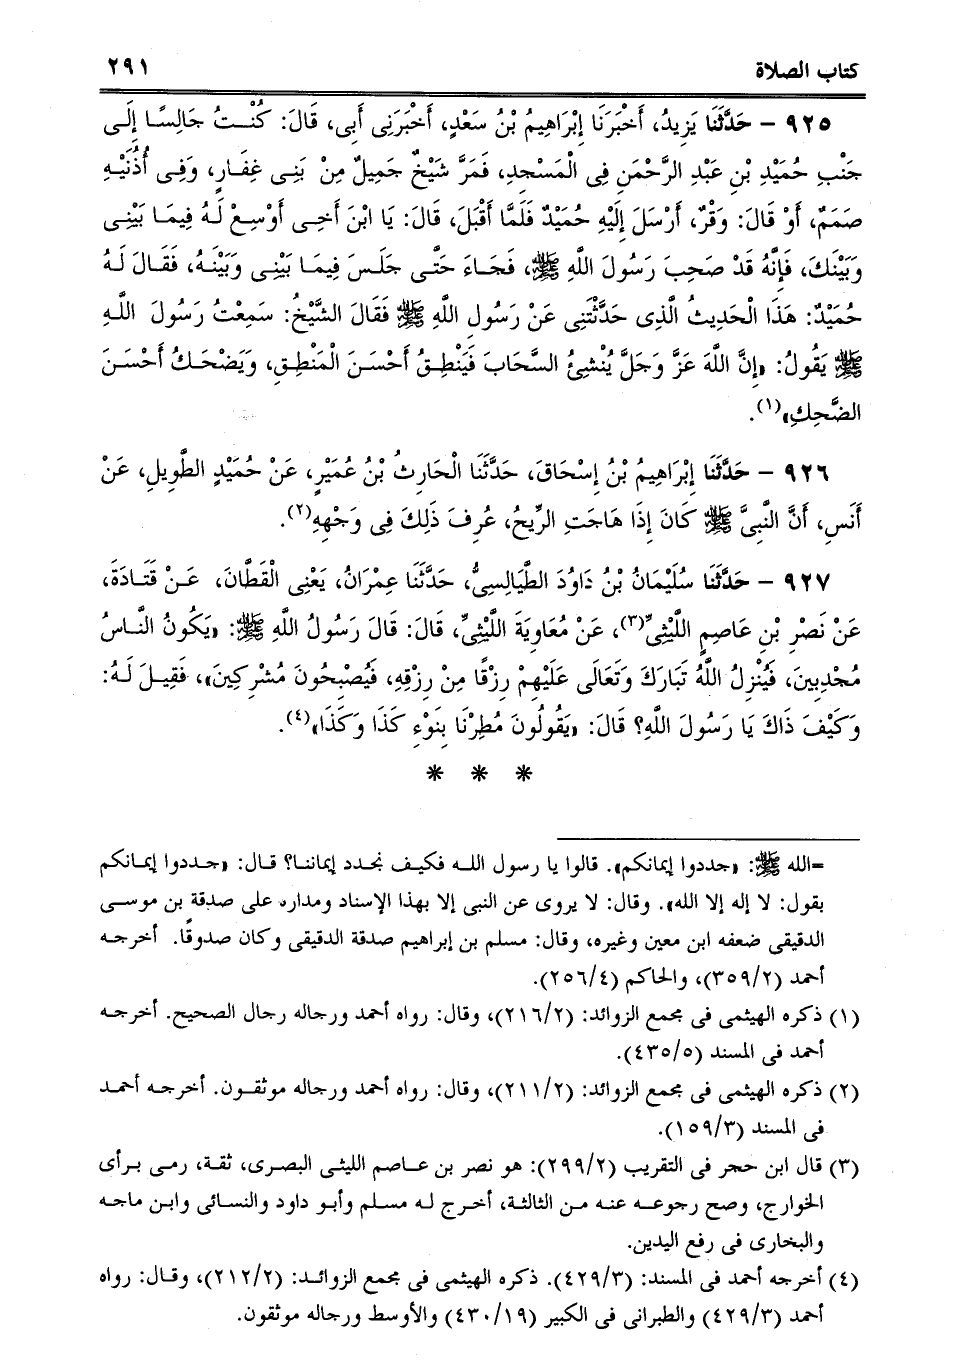 كتاب الصلاة ٢٩١
٩٢٥ – حَدَّثَنَا يَزِيدُ، أَخْبَرَنَا إِبْرَاهِيمُ بْنُ سَعْدٍ، أَخْبَرَنِى أَبِى، قَالَ: كُنْتُ جَالِسًا إِلَى
جَنْبِ حُمَيْدِ بْنِ عَبْدِ الرَّحْمَنِ فِى الْمَسْجِدِ، فَمَرَّ شَيْخٌ جَمِيلٌ مِنْ بَنِى غِفَارٍ، وَفِى أُذُنَيْهِ
صَمَمٌ، أَوْ قَالَ: وَقْرٌ، أَرْسَلَ إِلَيْهِ حُمَيْدٌ فَلَمَّا أَقْبَلَ، قَالَ: يَا ابْنَ أَخِى أَوْسِعْ لَهُ فِيمَا بَيْنِى
وَبَيْنَكَ، فَإِنَّهُ قَدْ صَحِبَ رَسُولَ اللَّهِ ﷺ، فَجَاءَ حَتَّى جَلَسَ فِيمَا بَيْنِى وَبَيْنَهُ، فَقَالَ لَهُ
حُمَيْدٌ: هَذَا الْحَدِيثُ الَّذِى حَدَّثْتَنِى عَنْ رَسُولِ اللَّهِ ﷺ فَقَالَ الشَّيْخُ: سَمِعْتُ رَسُولَ اللَّهِ
ﷺ يَقُولُ: «إِنَّ اللَّهَ عَزَّ وَجَلَّ يُنْشِئُ السَّحَابَ فَيَنْطِقُ أَحْسَنَ الْمَنْطِقِ، وَيَضْحَكُ أَحْسَنَ
الضَّحِكِ»(١).
٩٢٦ – حَدَّثَنَا إِبْرَاهِيمُ بْنُ إِسْحَاقَ، حَدَّثَنَا الْحَارِثُ بْنُ عُمَيْرٍ، عَنْ حُمَيْدٍ الطَّوِيلِ، عَنْ
أَنَسٍ، أَنَّ النَّبِىَّ ﷺ كَانَ إِذَا هَاجَتِ الرِّيحُ، عُرِفَ ذَلِكَ فِى وَجْهِهِ(٢).
٩٢٧ – حَدَّثَنَا سُلَيْمَانُ بْنُ دَاوُدَ الطَّيَالِسِىُّ، حَدَّثَنَا عِمْرَانُ، يَعْنِى الْقَطَّانَ، عَنْ قَتَادَةَ،
عَنْ نَصْرِ بْنِ عَاصِمٍ اللَّيْثِىِّ(٣)، عَنْ مُعَاوِيَةَ اللَّيْثِىِّ، قَالَ: قَالَ رَسُولُ اللَّهِ ﷺ: «يَكُونُ النَّاسُ
مُجْدِبِينَ، فَيُنْزِلُ اللَّهُ تَبَارَكَ وَتَعَالَى عَلَيْهِمْ رِزْقًا مِنْ رِزْقِهِ، فَيُصْبِحُونَ مُشْرِكِينَ»، فَقِيلَ لَهُ:
وَكَيْفَ ذَاكَ يَا رَسُولَ اللَّهِ؟ قَالَ: «يَقُولُونَ مُطِرْنَا بِنَوْءِ كَذَا وَكَذَا»(٤).
* * *
=الله ﷺ: «جددوا إيمانكم». قالوا يا رسول الله فكيف نجدد إيماننا؟ قال: «جددوا إيمانكم
بقول: لا إله إلا الله». وقال: لا يروى عن النبى إلا بهذا الإسناد ومداره على صدقة بن موسى
الدقيقى ضعفه ابن معين وغيره، وقال: مسلم بن إبراهيم صدقة الدقيقى وكان صدوقًا. أخرجه
أحمد (٣٥٩/٢)، والحاكم (٢٥٦/٤).
(١) ذكره الهيثمى فى مجمع الزوائد: (٢١٦/٢)، وقال: رواه أحمد ورجاله رجال الصحيح. أخرجه
أحمد فى المسند (٤٣٥/٥).
(٢) ذكره الهيثمى فى مجمع الزوائد: (٢١١/٢)، وقال: رواه أحمد ورجاله موثقون. أخرجه أحمد
فى المسند (١٥٩/٣).
(٣) قال ابن حجر فى التقريب (٢٩٩/٢): هو نصر بن عاصم الليثى البصرى، ثقة، رمى برأى
الخوارج، وصح رجوعه عنه من الثالثة، أخرج له مسلم وأبو داود والنسائى وابن ماجه
والبخارى فى رفع اليدين.
(٤) أخرجه أحمد فى المسند: (٤٢٩/٣). ذكره الهيثمى فى مجمع الزوائد: (٢١٢/٢)، وقال: رواه
أحمد (٤٢٩/٣) والطبرانى فى الكبير (٤٣٠/١٩) والأوسط ورجاله موثقون.